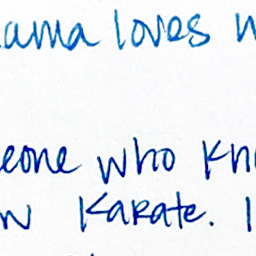 ama loves
eone who kn
w Karate. I